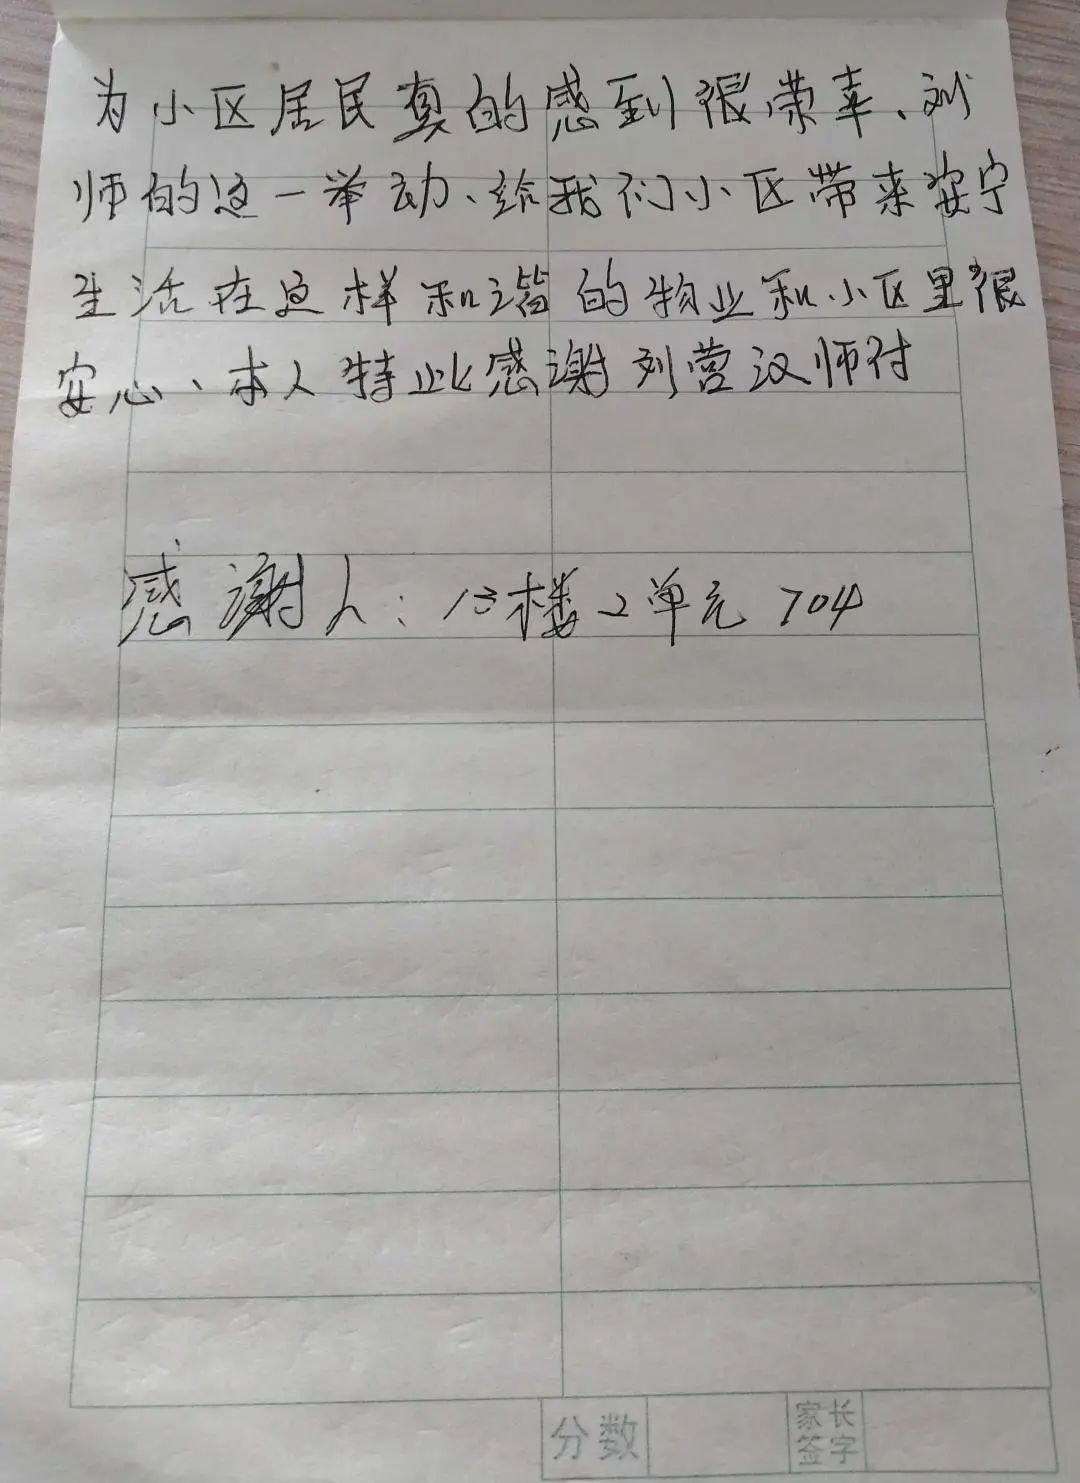 为小区居民真的感到很荣幸、刘
师的这一举动、给我们小区带来安宁
生活在这样和谐的物业和小区里很
安心、本人特此感谢刘营汉师付
感谢人：13楼2单元704
分数
家长
签字